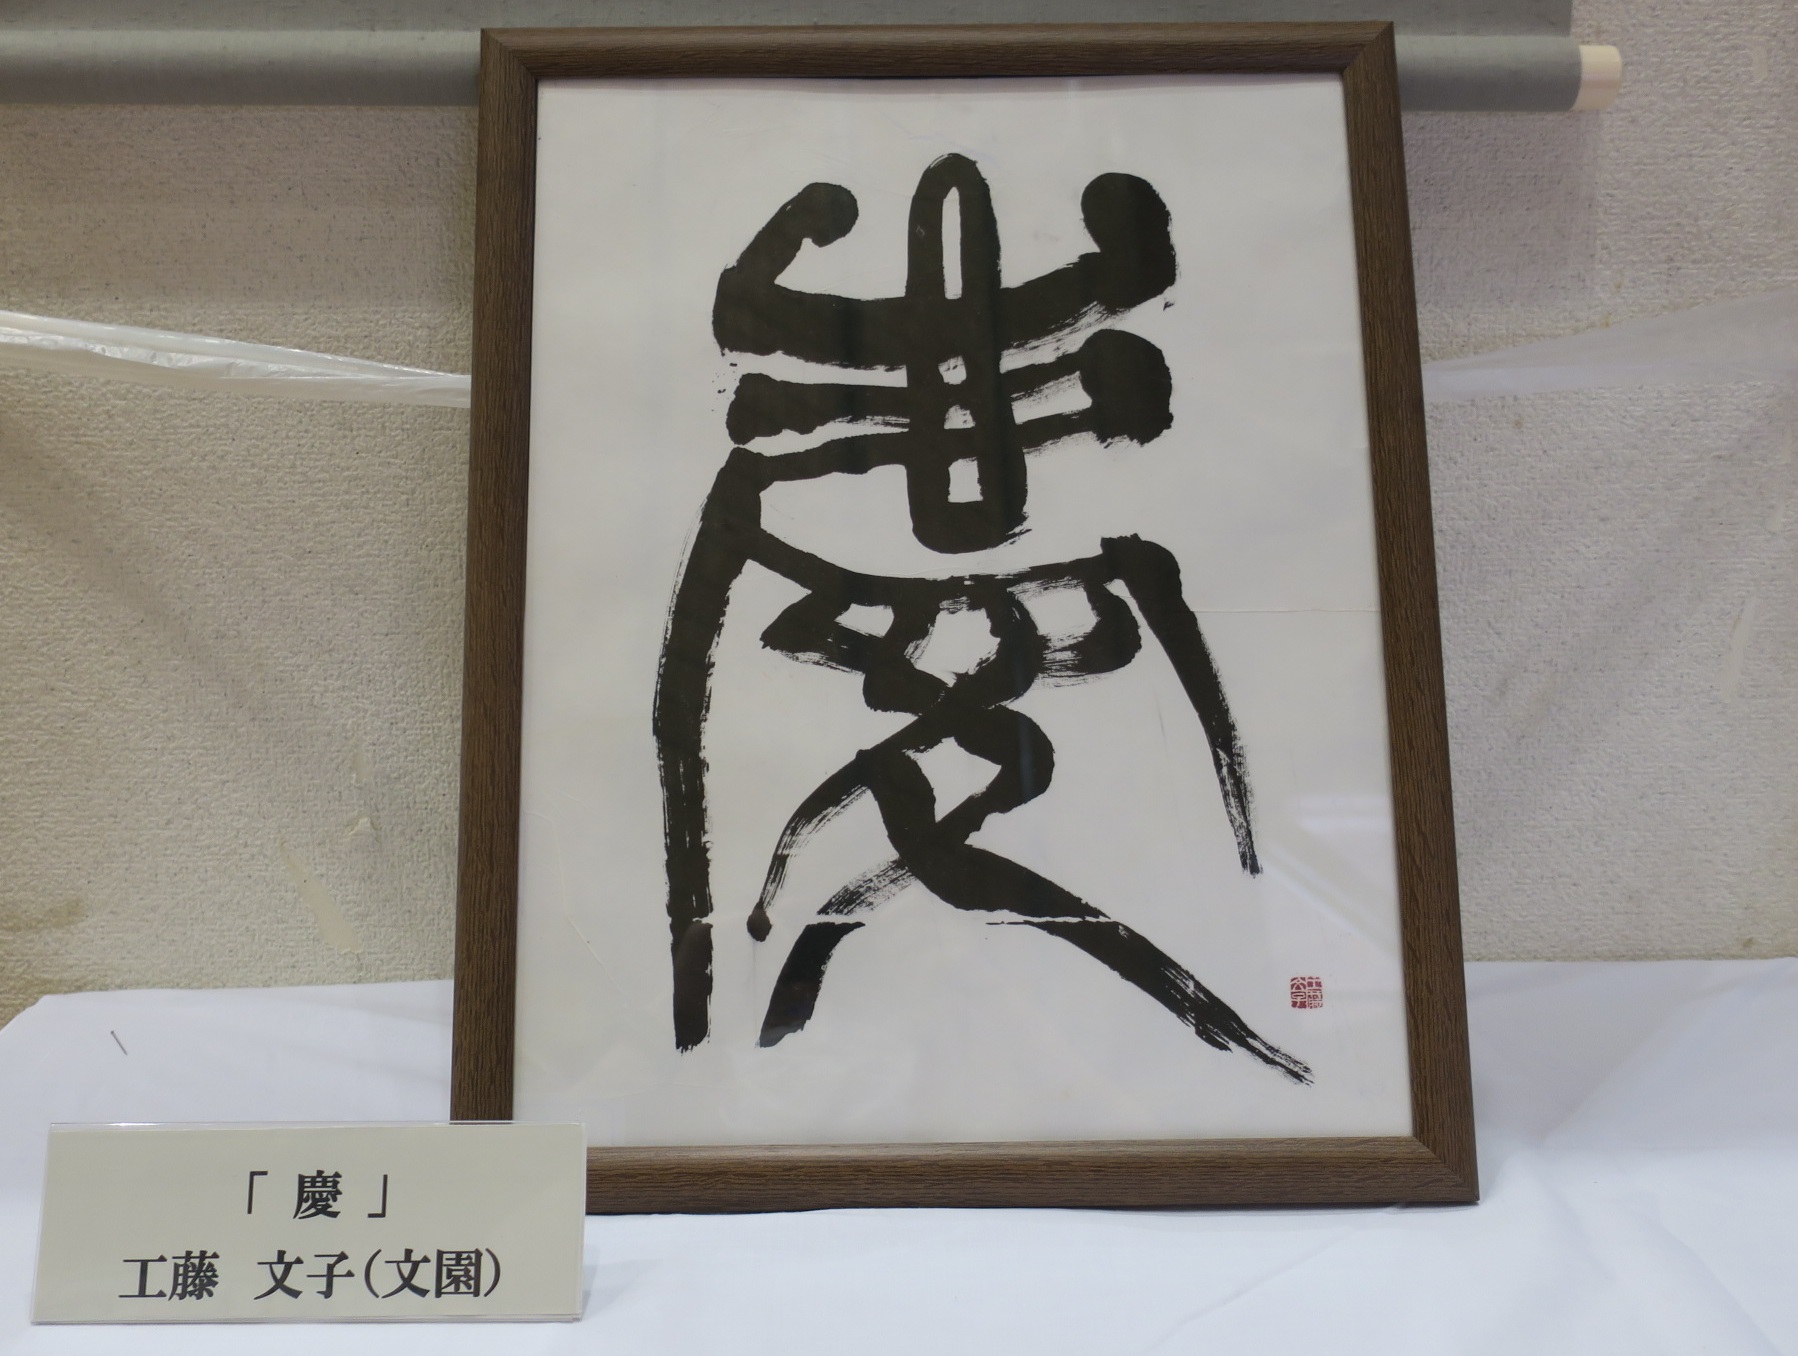 慶
「慶」
工藤 文子(文園)